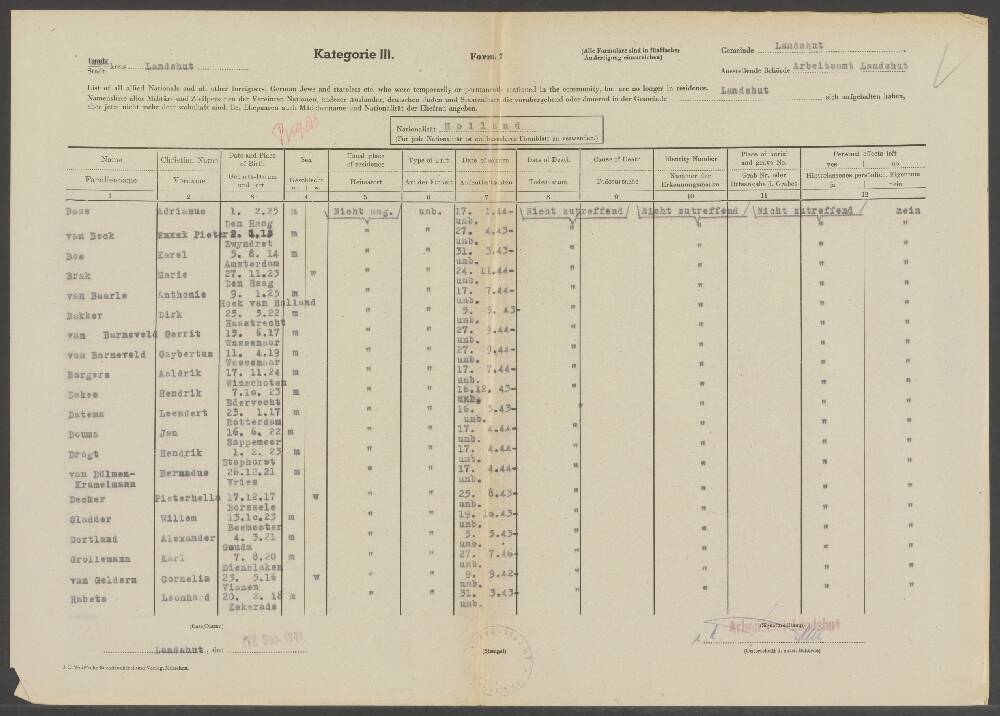 Land-
Stadt- kreis Landshut
Kategorie III.
Form. 7
(Alle Formulare sind in fünffacher
Ausfertigung einzureichen)
Gemeinde Landshut
Ausstellende Behörde Arbeitsamt Landshut
List of all allied Nationals and all other foreigners, German Jews and stateless etc. who were temporarily or permanently stationed in the community, but are no longer in residence.
Namensliste aller Militär- und Zivilpersonen der Vereinten Nationen, anderer Ausländer, deutschen Juden und Staatenlosen die vorübergehend oder dauernd in der Gemeinde Landshut sich aufgehalten haben,
aber jetzt nicht mehr dort wohnhaft sind. Bei Ehepaaren auch Mädchenname und Nationalität der Ehefrau angeben.
Nationalität Holland
(Für jede Nationalität ist ein besonderes Formblatt zu verwenden.)
Name Christian Name Date and Place of Birth Sex Usual place of residence Type of Date of Date of Death Cause of Death Identity Number Place of burial and grave No. Personal effects left yes no
Familienname Vorname Geburts-Datum und -ort Geschlecht m. w. Heimatort Art der Aufenthaltszeiten Todesdatum Todesursache Nummer der Erkennungsmarke Grab Nr. oder Ortsangabe d. Grabes Hinterlassenes persönlich. Eigentum ja nein
1 2 3 4 5 6 7 8 9 10 11 12
Baas Adrianus 1. 2.25 m Nicht ang. unb. 17. 1.44- Nicht zutreffend Nicht zutreffend Nicht zutreffend nein
Den Haag unb.
van Beck Pieter m " " 27. 4.43- " " " "
Zwyndret unb.
Bos Karel 5. 8. 14 m " " 31. 3.43- " " " "
Amsterdam unb.
Brak Marie 27. 11.23 w " " 24. 11.44- " " " "
Den Haag unb.
van Baarle Anthonie 9. 1.25 m " " 17. 7.44- " " " "
Hoek van Holland unb.
Bakker Dirk 25. 5.22 m " " 5. 5. 43- " " " "
Haastrecht unb.
van Barneveld Gerrit 15. 6.17 m " " 27. 9.44- " " " "
Wassenaar unb.
van Barneveld Gaybertus 11. 4.19 m " " 27. 9.44- " " " "
Wassenaar unb.
Borgers Aaldrik 17. 11.24 m " " 17. 7.44- " " " "
Winschoten unb.
Dokes Hendrik 7.10. 23 m " " 16.12. 43- " " " "
Edervecht unb.
Datema Leendert 23. 1.17 m " " 16. 3.43- " " " "
Rotterdam unb.
Douma Jan 16. 6. 22 m " " 17. 4.44- " " " "
Sappemeer unb.
Dragt Hendrik 1. 2. 23 m " " 17. 4.44- " " " "
Staphorst unb.
van Dülmen- Bernadus 26.12.21 m " " 17. 4.44- " " " "
Krumelmann Vries unb.
Decker Pieterhella 17.12.17 w " " 25. 8.43- " " " "
Borssele unb.
Gladder Willem 13.10.23 m " " 19. 10.43- " " " "
Beemester unb.
Gortland Alexander 4. 3.21 m " " 5. 5.43- " " " "
Gouda unb.
Grollemann Karl 7. 8.20 m " " 27. 7.46- " " " "
Dienslaken unb.
van Geldern Cornelia 23. 5.16 w " " 9. 9.42- " " " "
Vianen unb.
Habets Leonhard 20. 2. 18 m " " 31. 3.43- " " " "
Kekerade unb.
(Date/Datum)
Landshut, den Sep. 1947
(Stempel)
(Unterschrift d. ausst. Behörde)